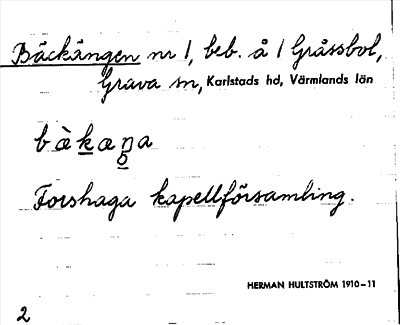 Bäckängen nr 1, beb. å 1 Gråssbol,
Grava sn, Karlstads hd, Värmlands län
bàkaŋa
Forshaga kapellförsamling.
HERMAN HULTSTRÖM 1910–11
2